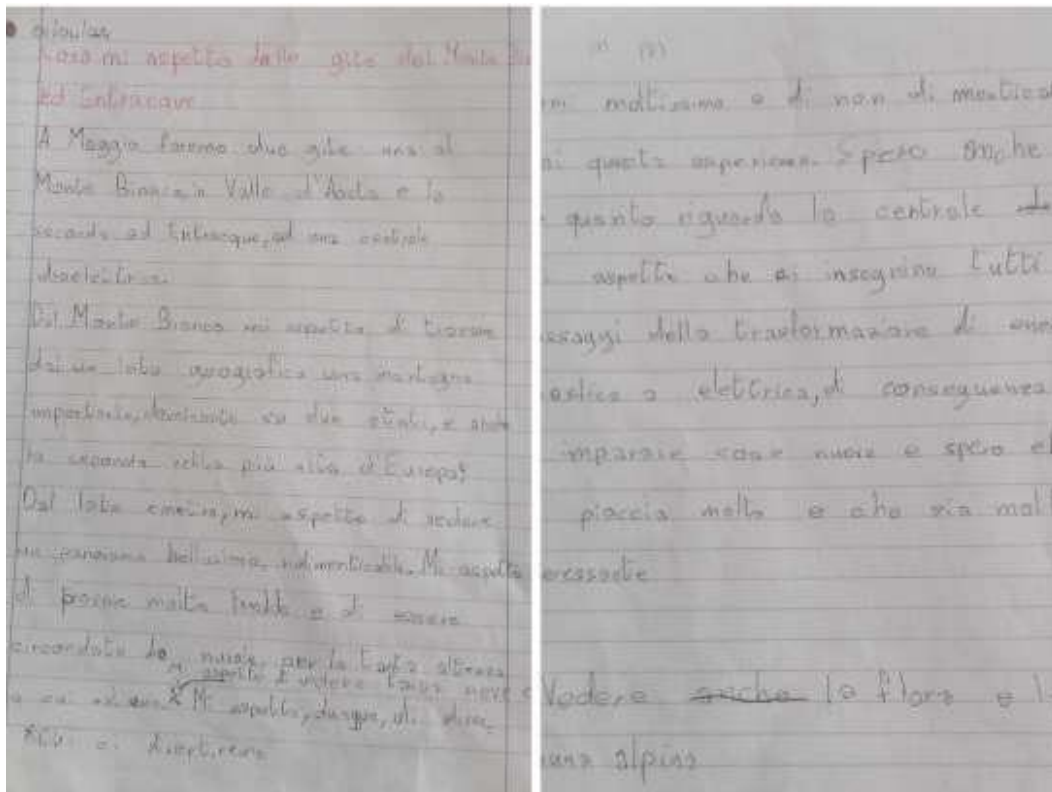 Cosa mi aspetto dalle gite del Monte
ed Entracque
A Maggio faremo due gite una al
Monte Bianco, in Valle d'Aosta e la
seconda ad Entracque, ad una centrale
idroelettrica.
Dal Monte Bianco mi aspetto di trovare
dal un lato geografico una montagna
importante, su due stati, e anche
la seconda vetta più alta d'Europa!
Dal lato emotivo, mi aspetto di vedere
un panorama bellissimo, indimenticabile. Mi aspetto
di provare molto freddo e di essere
circondata da nuvole, per la tanta altezza
aspetto di vedere tanta neve e
a cui Mi aspetto, dunque, di
ci divertiremo
mi moltissimo e di non di mentica
mai questa esperienza. Spero anche
quanto riguarda la centrale
aspetto che ci insegnino tutti
assaggi della trasformazione di ene
astica a elettrica, di conseguenza
imparare cose nuove e spero
piaccia molto e che sia mol
eressante
Vedere anche la flora e l
auna alpina